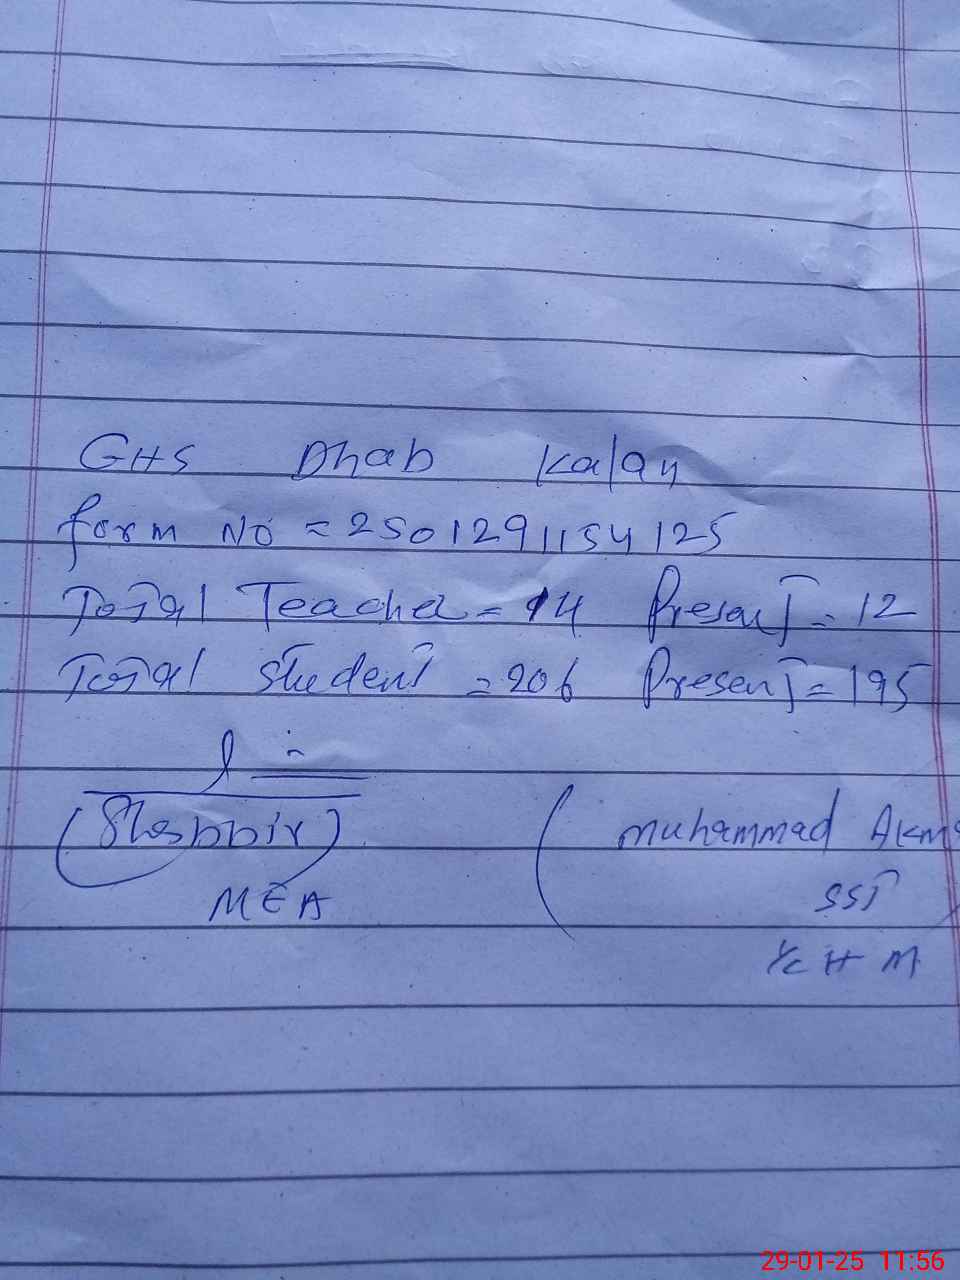 GHS Dhab Kalan
form No = 2501291154125
Total Teacher = 14 Present = 12
Total Student = 206 Present = 195
(Shabbir)
MEA
(Muhammad Akm
SST
I/c H M
29-01-25 11:56